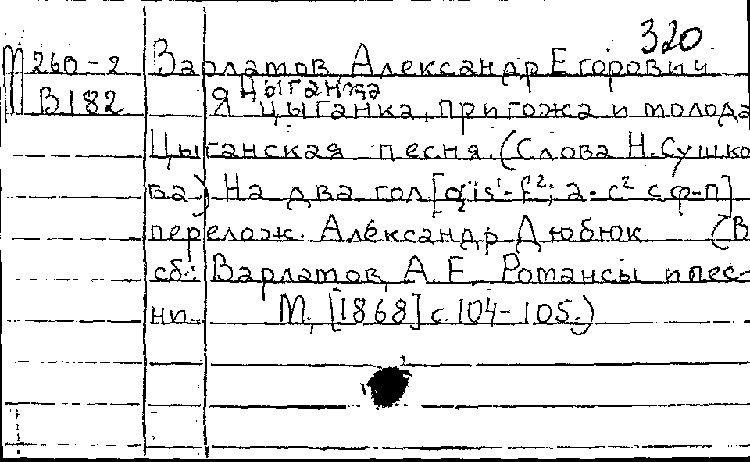 320
М 260-2 Варламов Александр Егорович
В 182 Я цыганка, пригожа и молода
Цыганка
Цыганская песня. (Слова Н. Сушко
ва.) На два гол. [gis¹-f²; a-c² с ф-п]
перелож. Александр Дюбюк (В
сб.: Варламов, А. Е. Романсы и пес-
ни. М., [1868] с. 104-105.)